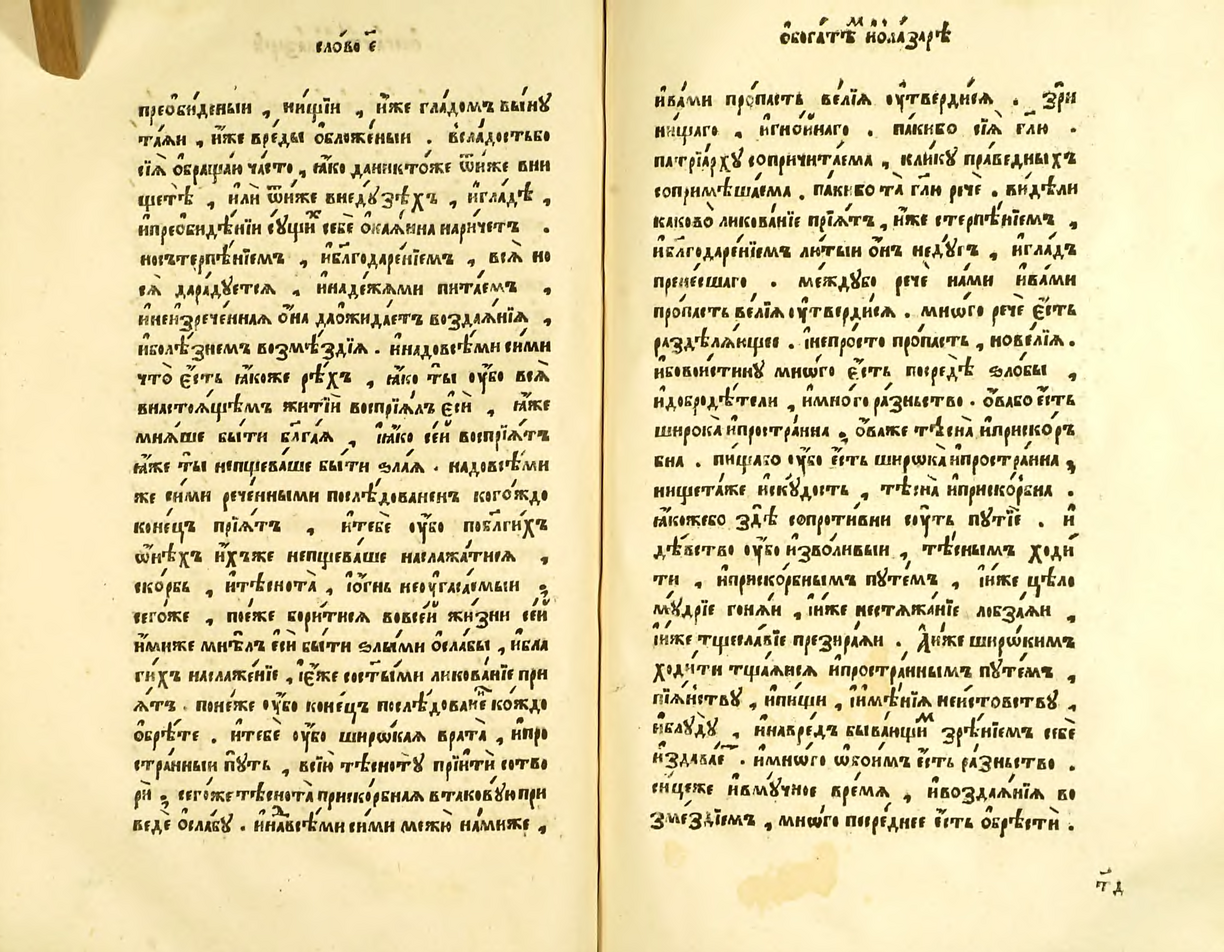 сло́во є҃
преѡби́деныи , ни́щїи , и́же гла́домъ вы́нꙋ
та́ѧи , и́же вре́ды ѡбложе́ныи . всла́достьбо
сїѧ̀ ѡбраща́ю ча́сто , ꙗ҆́ко даникто́же ѿни́же вни
щетѣ̀ , илѝ ѿни́же внедꙋ́зѣхъ , игла́дѣ ,
ипреѡбидѣ́нїи сꙋ́щих себѐ ѡкаѧ́нна наричетъ .
носътерпѣ́нїемъ , иблгодаре́нїемъ , всѧ̀ но
сѧ̀ дара́дꙋетсѧ , инаде́жѧми пита́емъ ,
инеизрече́ннаѧ ѡ́на даожида́етъ воздаѧ́нїѧ ,
иболѣ́знемъ возмѣ́здїѧ . инадовсѣ́ми си́ми
что̀ є҆́сть ꙗ҆́коже рѣ́хъ , ꙗ҆́ко ты̀ ᲂу҆́бо всѧ̀
внастоѧ́щѣмъ житїѝ воспрїѧ́лъ єсѝ , ꙗ҆́же
мнѧ́ше бы́ти блга́ѧ , ꙗ҆́ко се́й воспрїѧ́тъ
ꙗ҆́же ты̀ непщева́ше бы́ти ѕла́ѧ . надовсѣ́ми
же си́ми рече́нными послѣ́дованенъ кого́ждо
коне́цъ прїѧ́тъ , итебѐ ᲂу҆́бо побл҃ги́хъ
ѻнѣ́хъ и́хъже непщева́ше наслажа́тисѧ ,
ско́рбь , итѣснота̀ , їо́гнь неᲂугаса́емыи ;
сего́же , по́еже бори́тисѧ вовсе́й жи́зни се́й
и́миже мнѣ́лъ єсѝ бы́ти ѕлы́ми ѡсла́бы , ибла
ги́хъ наслаже́нїе , їє́же состы́ми ликова́нїе при
ѧ́тъ . поне́же ᲂу҆́бо коне́цъ послѣ́дованїе ко́ждо
ѡбрѣ́те . итебѐ ᲂу҆́бо широ́каѧ врата̀ , ипро
стра́нныи пꙋ́ть , всїю̀ тѣснотꙋ̀ прїитѝ сотво
рѝ ; сего́же тѣснота̀ приско́рбнаѧ втакову́ю при
ведѐ ѡсла́бꙋ . инадвсѣ́ми си́ми межю̀ на́миже ,
ѡбога́тѣм ио҆ла́зарѣ
ива́ми про́пасть ве́лїѧ ᲂутверди́сѧ . зри
ни́щаго , игно́йнаго . па́кибо сїѧ̀ глю .
патрїа́рхꙋ сопричита́ема , кли́кꙋ пра́ведныхъ
сопримѣша́ема . па́кибо та̀ глю речѐ . ви́дѣли
каково̀ ликова́нїе прїѧ́тъ , и́же стерпѣ́нїемъ ,
иблгодаре́нїемъ лю́тыи ѻ́нъ недꙋ́гъ , игла́дъ
пренесшаго . междꙋ́бо речѐ на́ми ива́ми
про́пасть ве́лїѧ ᲂутверди́сѧ . мно́гѡ речѐ є҆́сть
раздѣлѧ́ющее . їнепро́сто про́пасть , нове́лїѧ .
ибовои́стинꙋ мно́гѡ є҆́сть посредѣ̀ ѕло́бы ,
идобродѣ́тели , имно́го ра́зньство . ѻ́вабо є҆́сть
широка̀ ипростра́нна , ѻ́важе тѣсна̀ иприско́р
бна . пи́щабо ᲂу҆́бо є҆́сть широка̀ ипростра́нна ,
нищета́же иску́дость , тѣсна̀ иприско́рбна .
ꙗ҆́кожебо здѣ̀ сопроти́вни сꙋ́ть пꙋтїѐ . и
дѣ́вство ᲂу҆́бо изво́ливыи , тѣ́снымъ ходи́
ти , иприско́рбнымъ пꙋте́мъ , їи́же цѣ́ло
мꙋ́дрїе гонѧ́и , їи́же нестѧжа́нїе лобза́ѧи ,
їи́же тщесла́вїе презира́ѧи . Аи́же широ́кимъ
ходи́ти тща́ѧисѧ ипростра́ннымъ пꙋте́мъ ,
пїѧ́нствꙋ , ипи́щи , їимѣ́нїѧ неи́стовствꙋ ,
иблꙋ́дꙋ , инавре́дъ быва́ющим зрѣ́нїемъ себѐ
издава́е . имно́гѡ ѡбои́мъ є҆́сть ра́зньство .
си́цеже ивмꙋ́чное вре́мѧ , ивоздаѧ́нїѧ во
змездїемъ , мно́гѡ посре́днее є҆́сть ѡбрѣстѝ .
т҃д